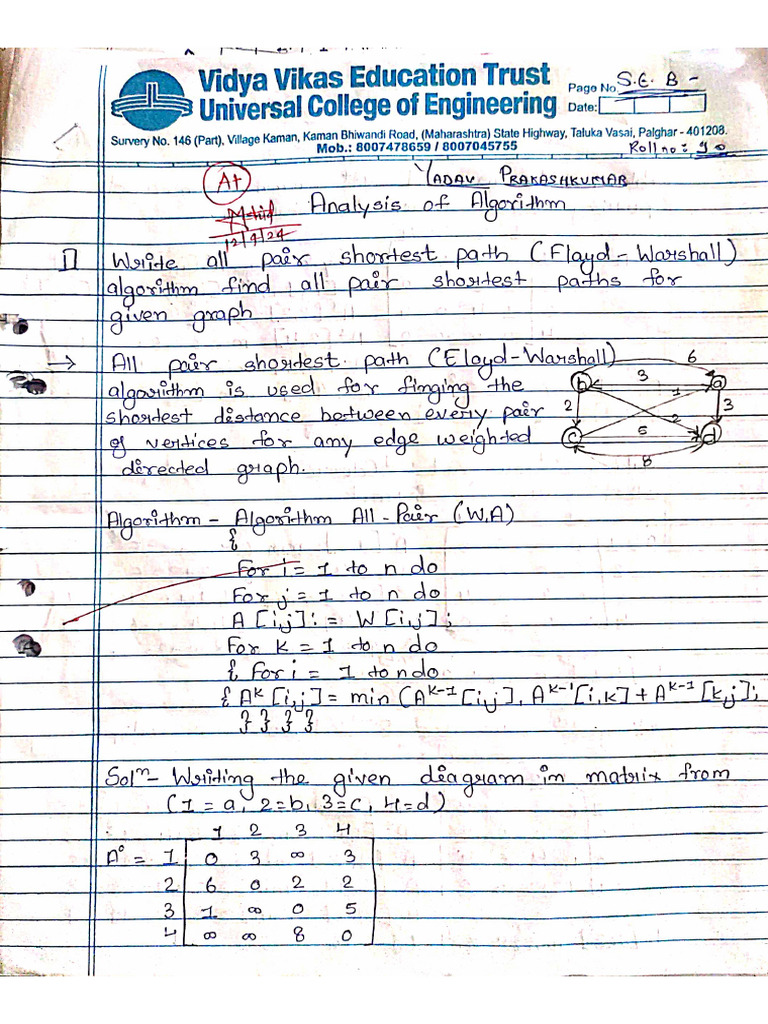 Vidya Vikas Education Trust
Universal College of Engineering
Page No. S.E. B -
Date:
Survery No. 146 (Part), Village Kaman, Kaman Bhiwandi Road, (Maharashtra) State Highway, Taluka Vasai, Palghar - 401208.
Mob.: 8007478659 / 8007045755
Roll no: 90
A+
YADAV PRAKASHKUMAR
Analysis of Algorithm
12/9/24
1] Write all pair shortest path (Floyd-Warshall)
algorithm find all pair shortest paths for
given graph
→ All pair shortest path (Floyd-Warshall)
algorithm is used for finging the
shortest distance between every pair
of vertices for any edge weighted
directed graph.
6
b 3 1 a
2 2 3
c 5 d
8
Algorithm - Algorithm All-Pair (W,A)
{
For i = 1 to n do
For j = 1 to n do
A [i,j] := W [i,j];
For k = 1 to n do
{ For i = 1 to n do
{ A^k [i,j] = min (A^k-1 [i,j], A^k-1 [i,k] + A^k-1 [k,j];
} } } }
Sol^n - Writing the given diagram in matrix from
(1 = a, 2=b, 3=c, 4=d)
1 2 3 4
A° = 1 0 3 ∞ 3
2 6 0 2 2
3 1 ∞ 0 5
4 ∞ ∞ 8 0